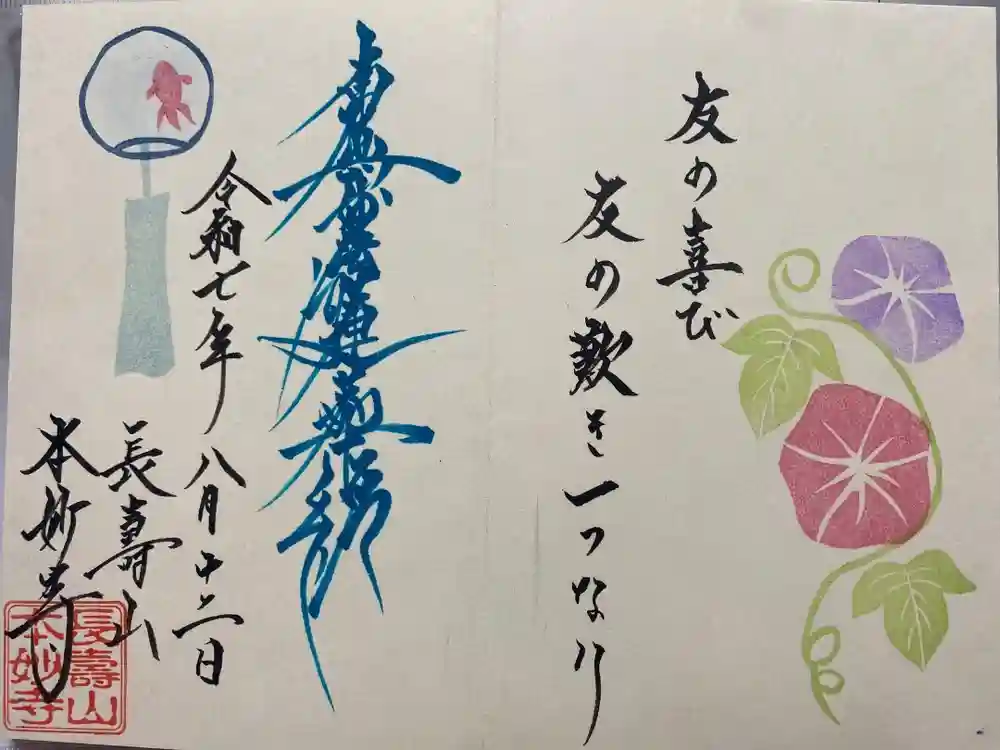 友の喜び
友の歎き一つなり
南無妙法蓮華経
令和七年八月十二日
長壽山
本妙寺
長壽山
本妙寺